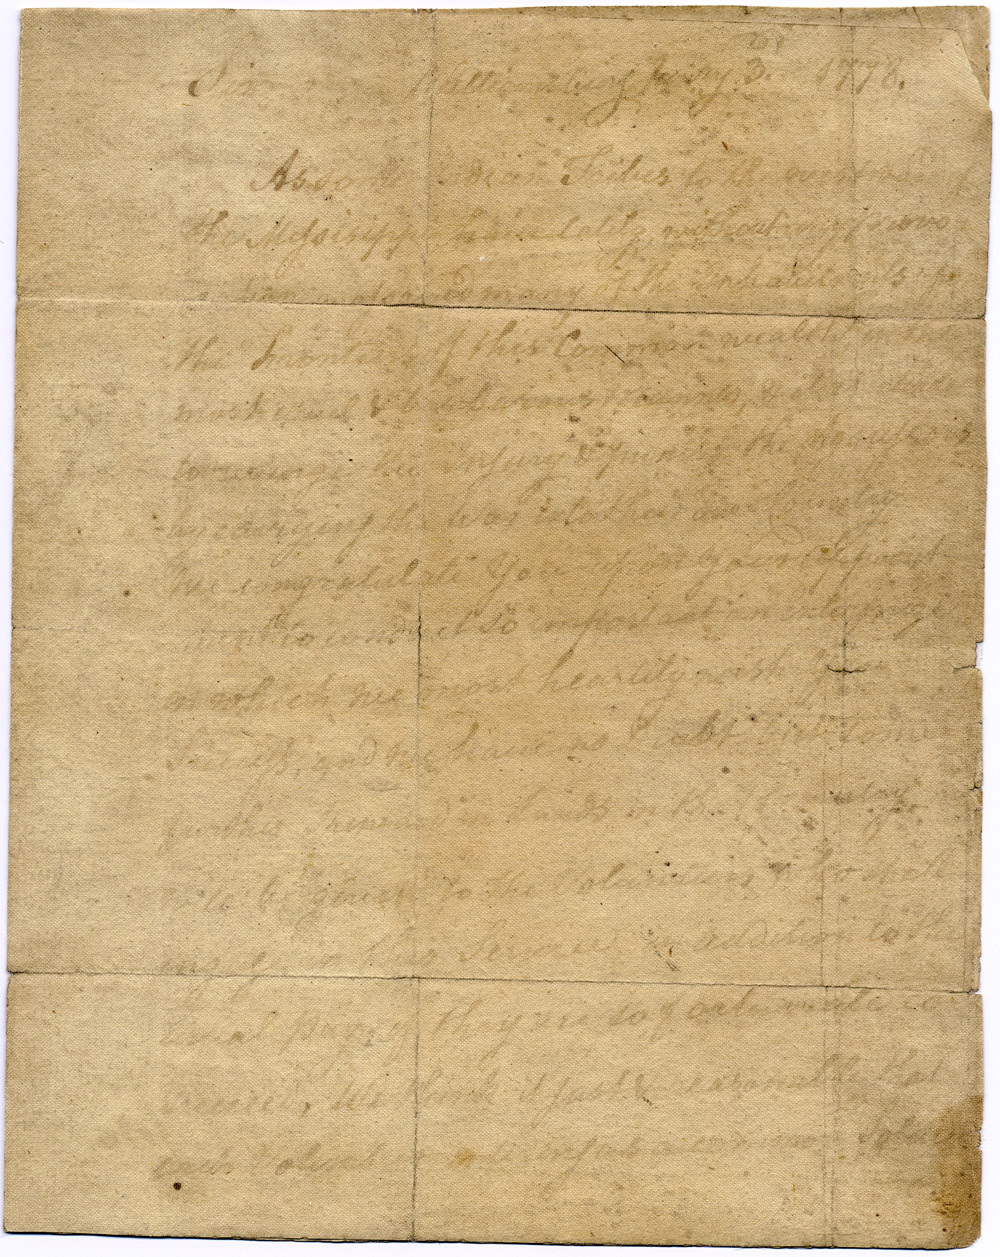 Sir Williamsburg Janry 3d. 1778.
As some Indian Tribes to the westward of
the Mississippi have lately, without any provo
many of the Inhabitants
the Frontiers of this Commonwealth in the
most cruel & barbarous manner, & it is
to revenge the Injury & punish the Aggressors
by carrying the War into their own Country
We congratulate You upon your appoint
ment to conduct so important an enterprize
in which we most heartily wish You
Success; and we have no Doubt but some
further Reward in Lands in the Country
will be given to the Volunteers who shall
in this Service in addition to the
usual Pay if they are so fortunate to
succeed, We think it just & reasonable that
each Volunteer entering as a common Soldier